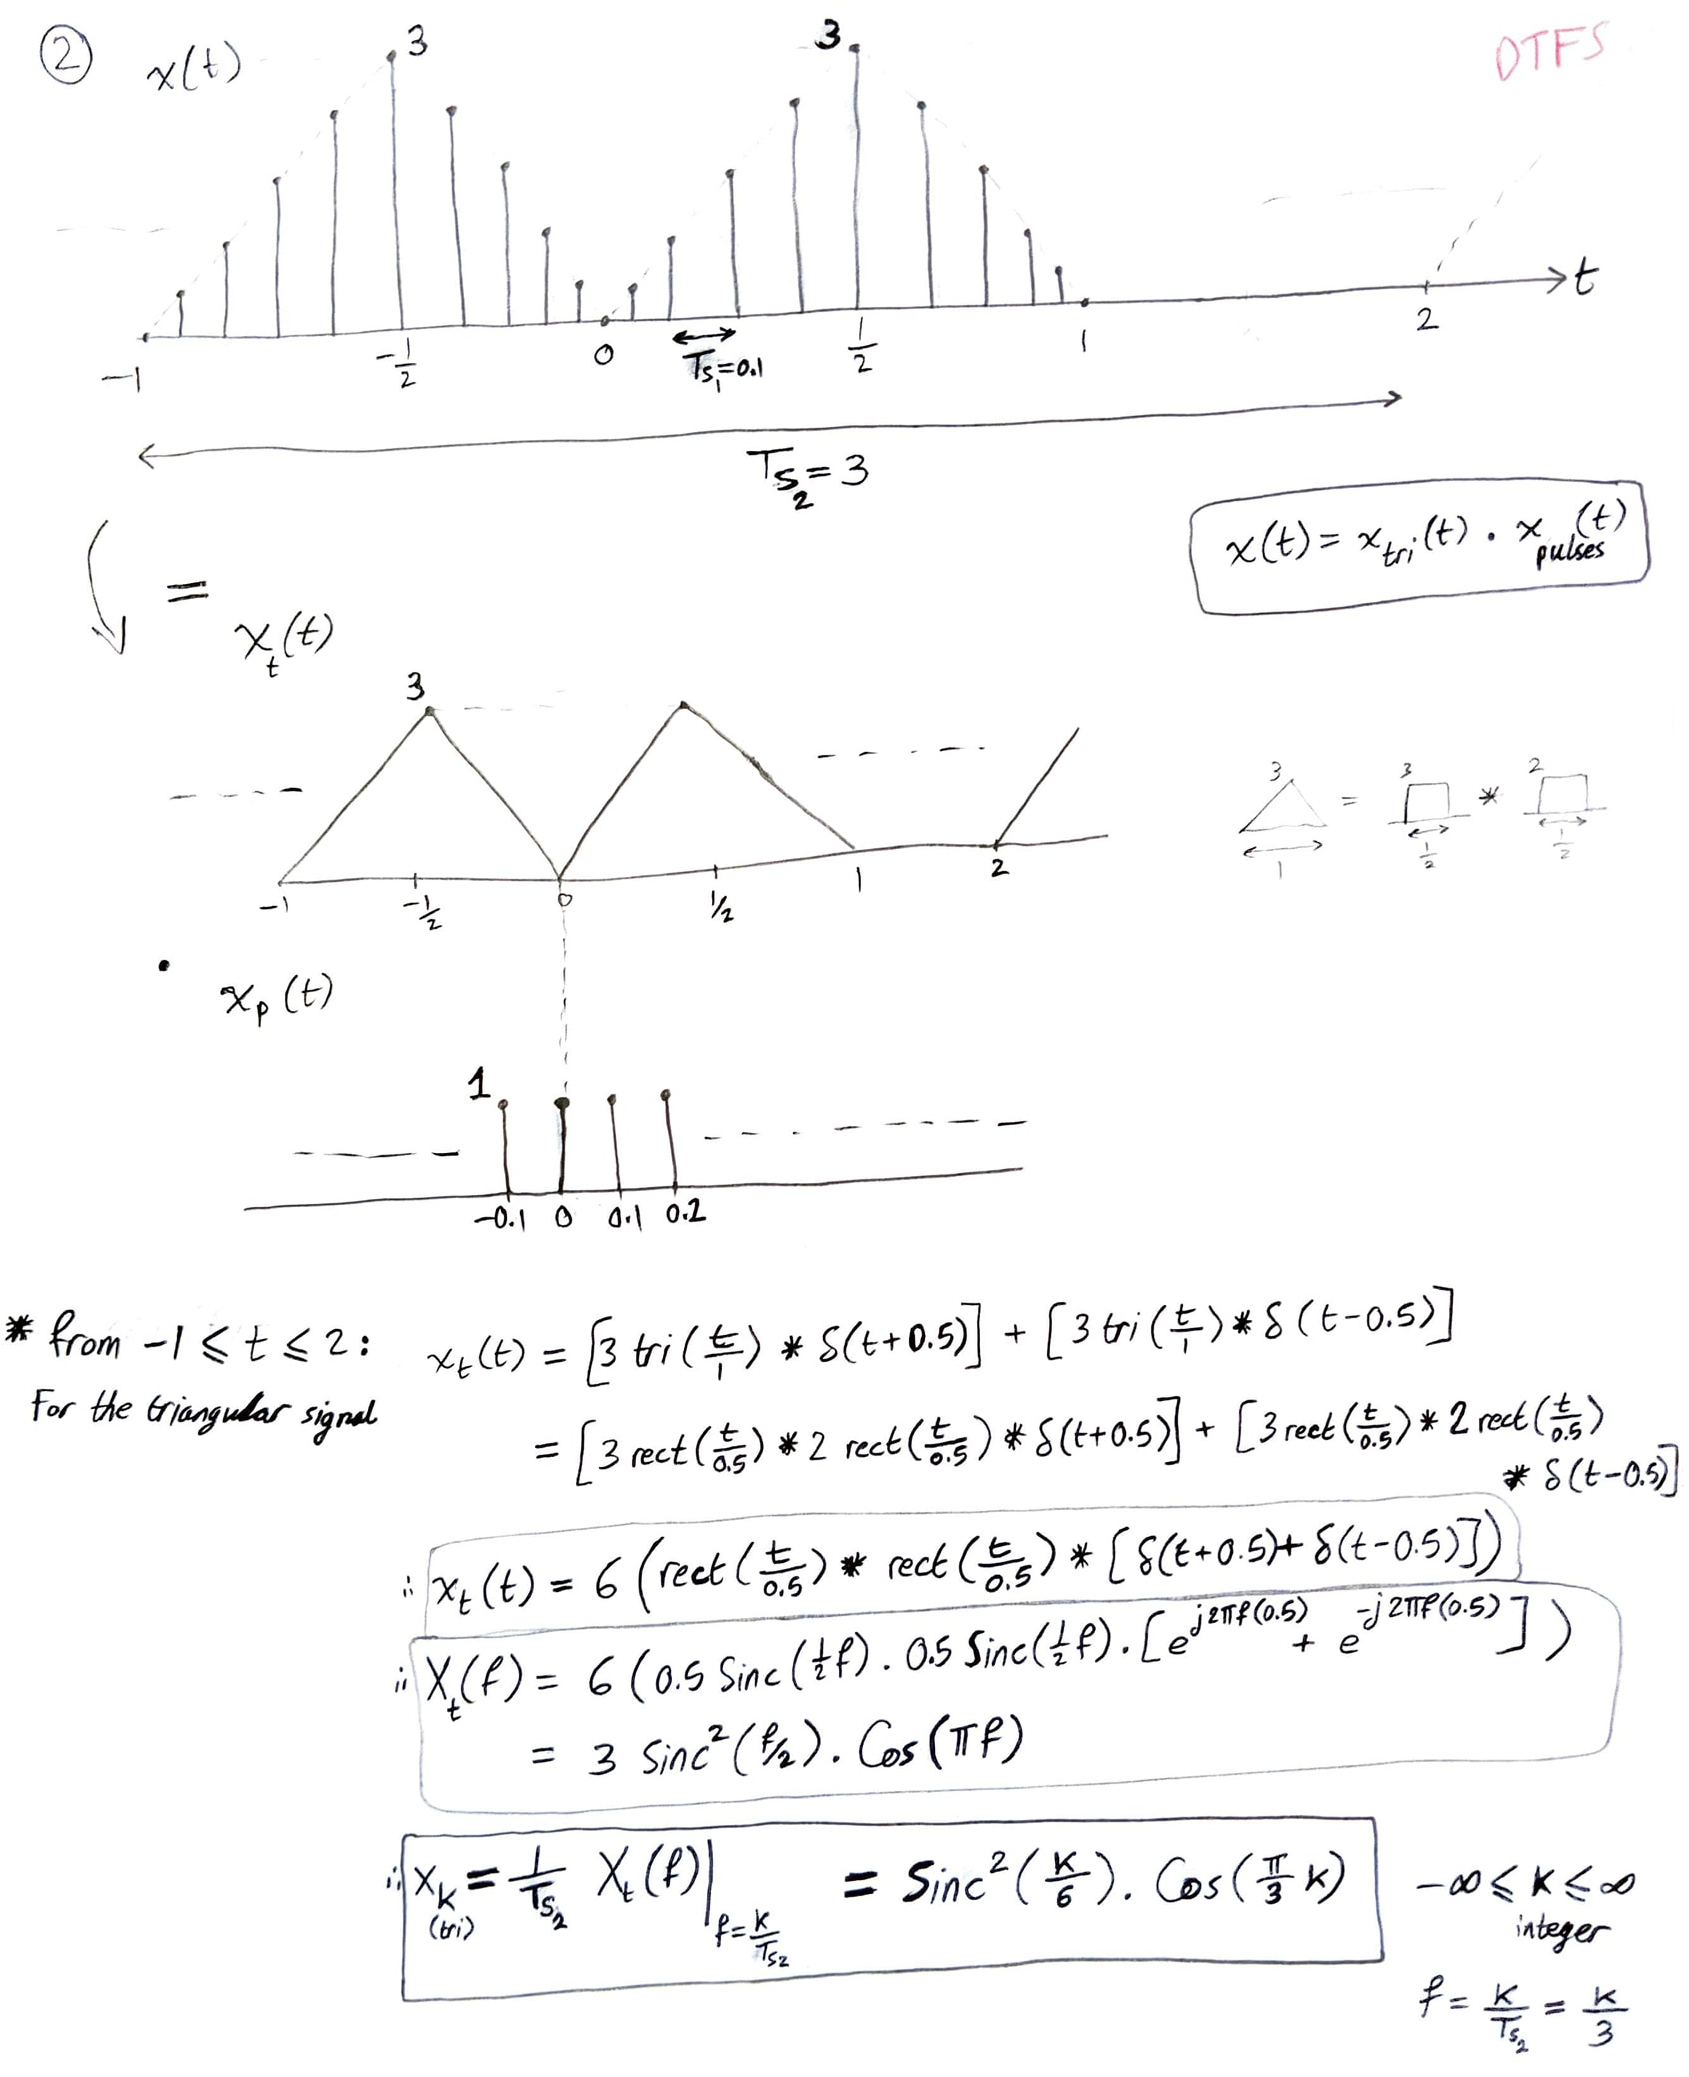 ② x(t) 3 3 DTFS
-1 -1/2 0 Ts₁=0.1 1/2 1 2 t
Ts₂ = 3
x(t) = x_tri(t) . x_pulses(t)
=
x_t(t)
3
-1 -1/2 0 1/2 1 2
3 = 3 * 2
1 1/2 1/2
. x_p(t)
1
-0.1 0 0.1 0.2
* from -1 ≤ t ≤ 2: x_t(t) = [3 tri(t/1) * δ(t+0.5)] + [3 tri(t/1) * δ(t-0.5)]
For the triangular signal
= [3 rect(t/0.5) * 2 rect(t/0.5) * δ(t+0.5)] + [3 rect(t/0.5) * 2 rect(t/0.5)
* δ(t-0.5)]
∴ x_t(t) = 6 (rect(t/0.5) * rect(t/0.5) * [δ(t+0.5)+ δ(t-0.5)])
∴ X_t(f) = 6 (0.5 Sinc(1/2 f) . 0.5 Sinc(1/2 f) . [e^{j2πf(0.5)} + e^{-j2πf(0.5)}])
= 3 Sinc²(f/2) . Cos(πf)
∴ X_K (tri) = 1/Ts₂ X_t(f)|f=K/Ts₂ = Sinc²(K/6) . Cos(π/3 K) -∞ ≤ K ≤ ∞
integer
f = K/Ts₂ = K/3